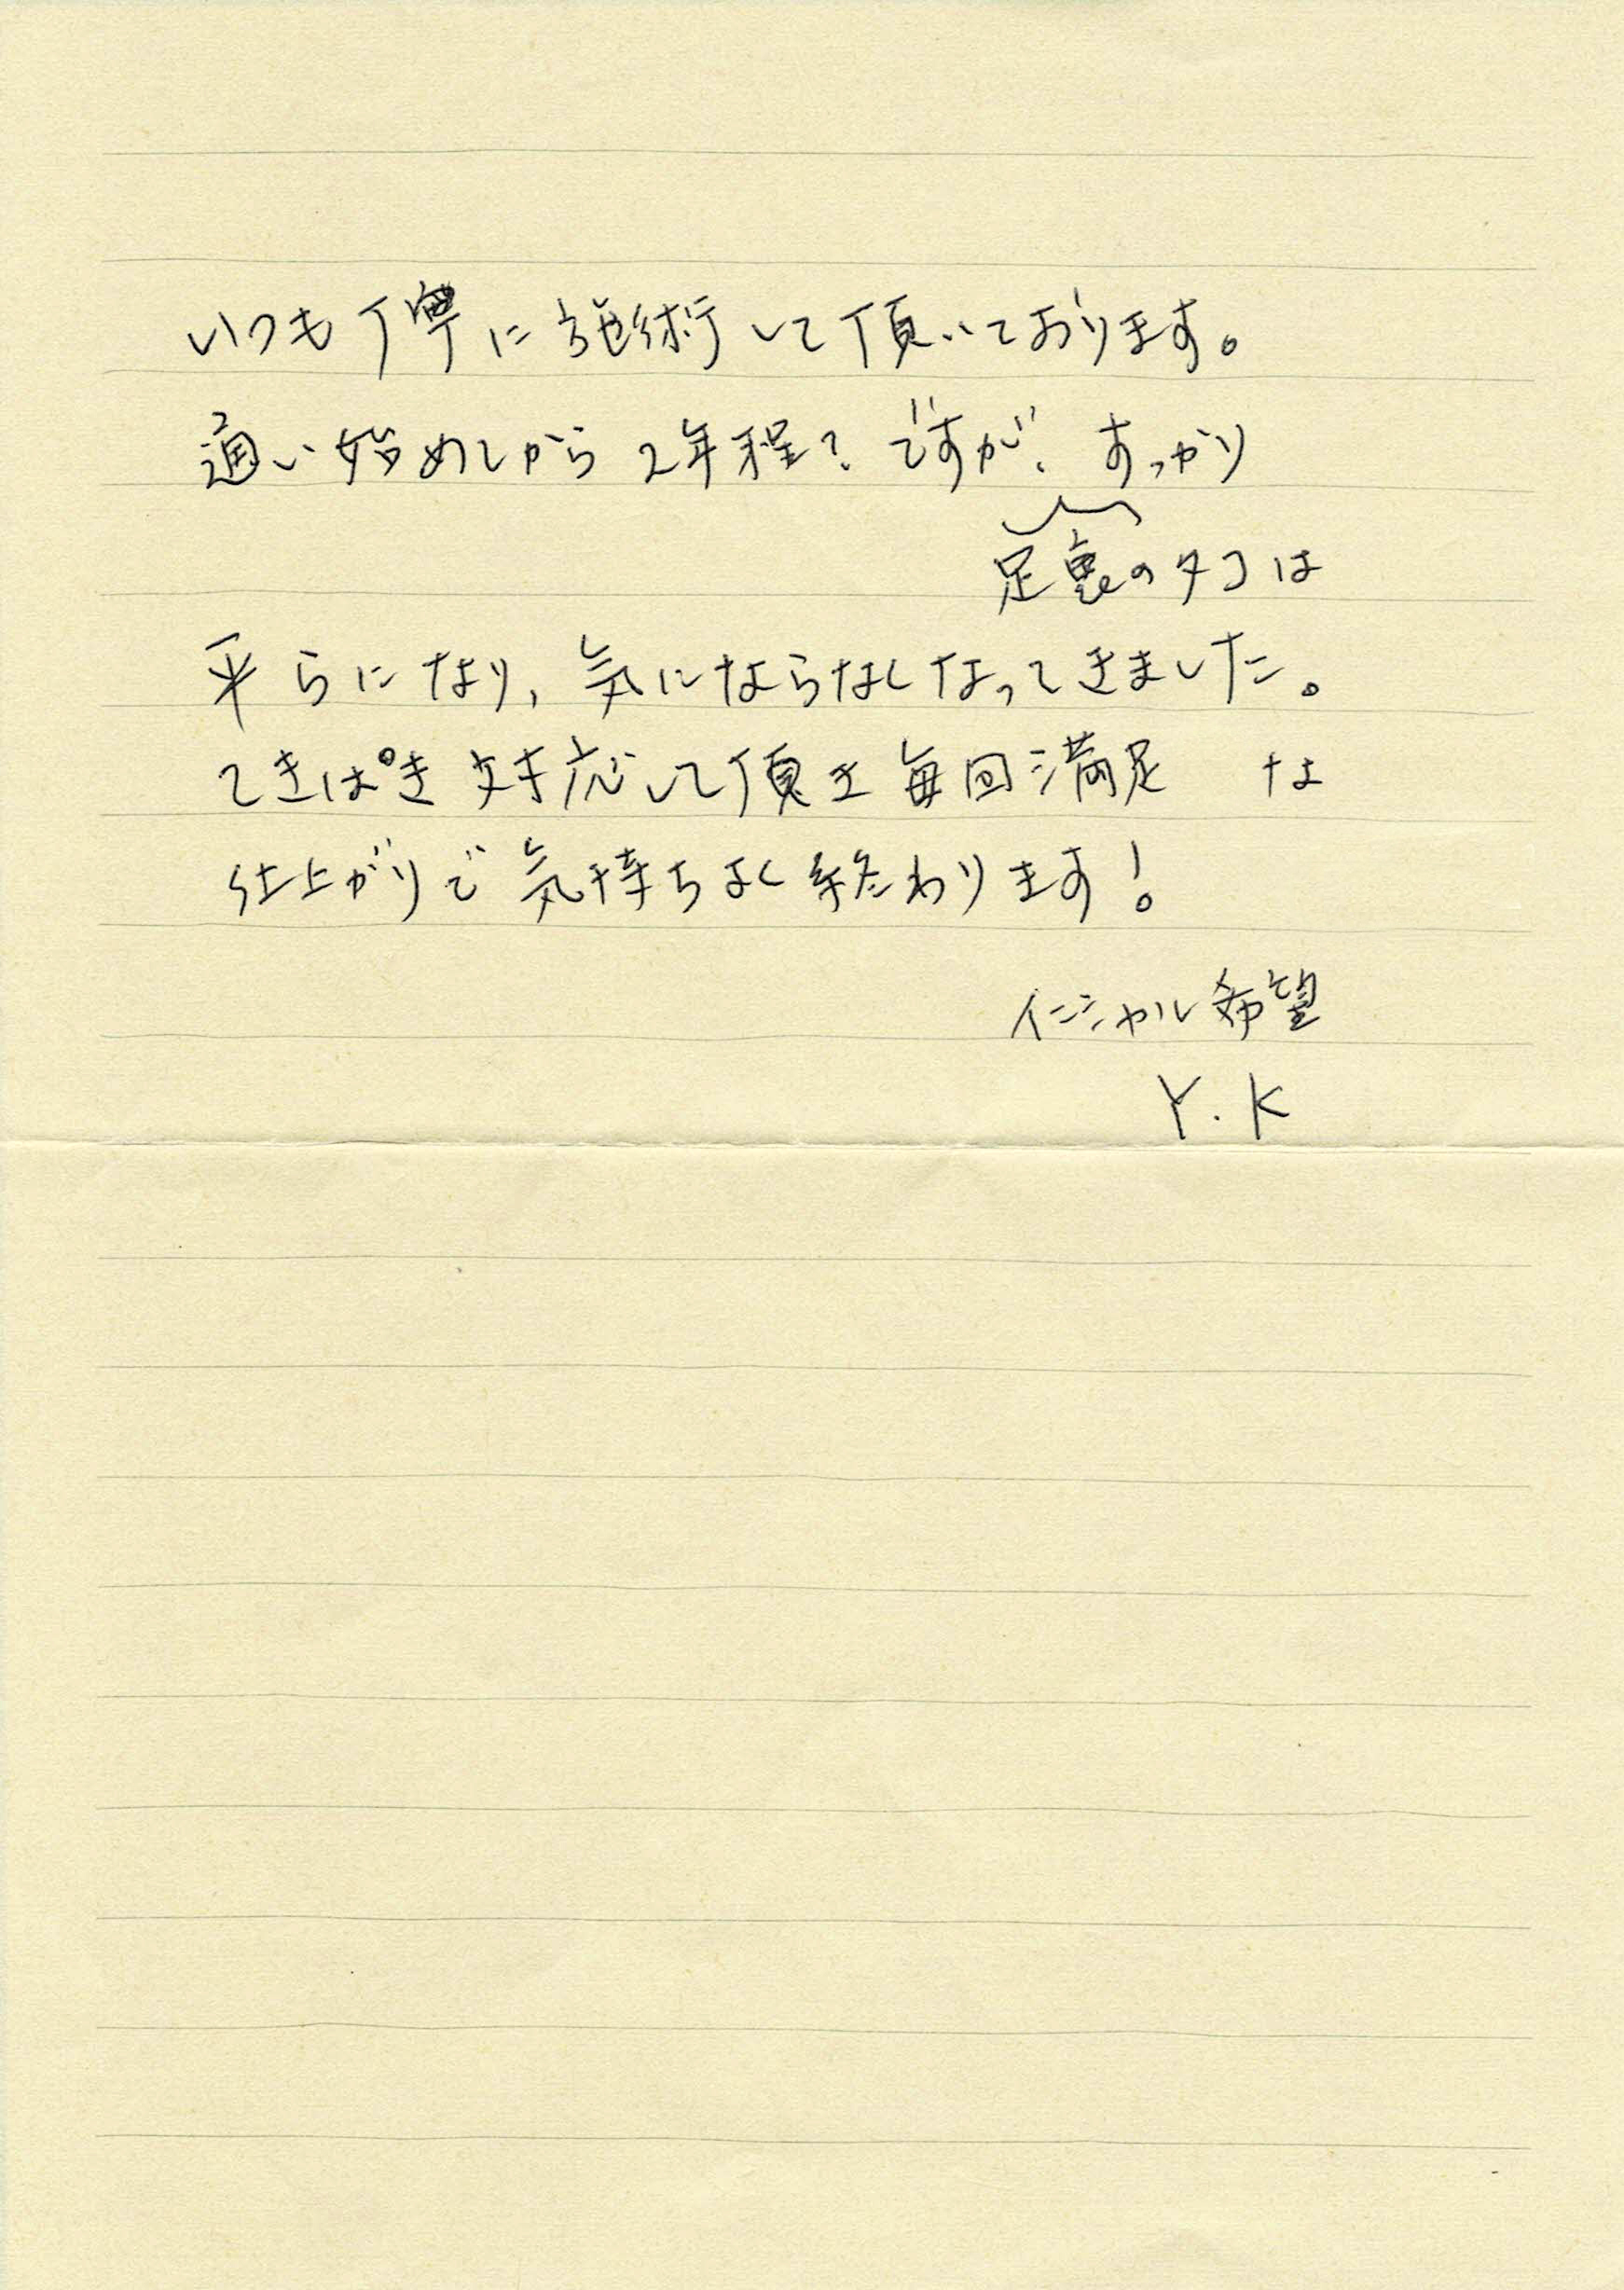 いつも丁寧に施術して頂いております。
通い始めてから2年程?ですが、すっかり
足裏のタコは
平らになり、気にならなくなってきました。
てきぱき対応して頂き毎回満足 な
仕上がりで気持ちよく終わります!
イニシャル希望
Y.K